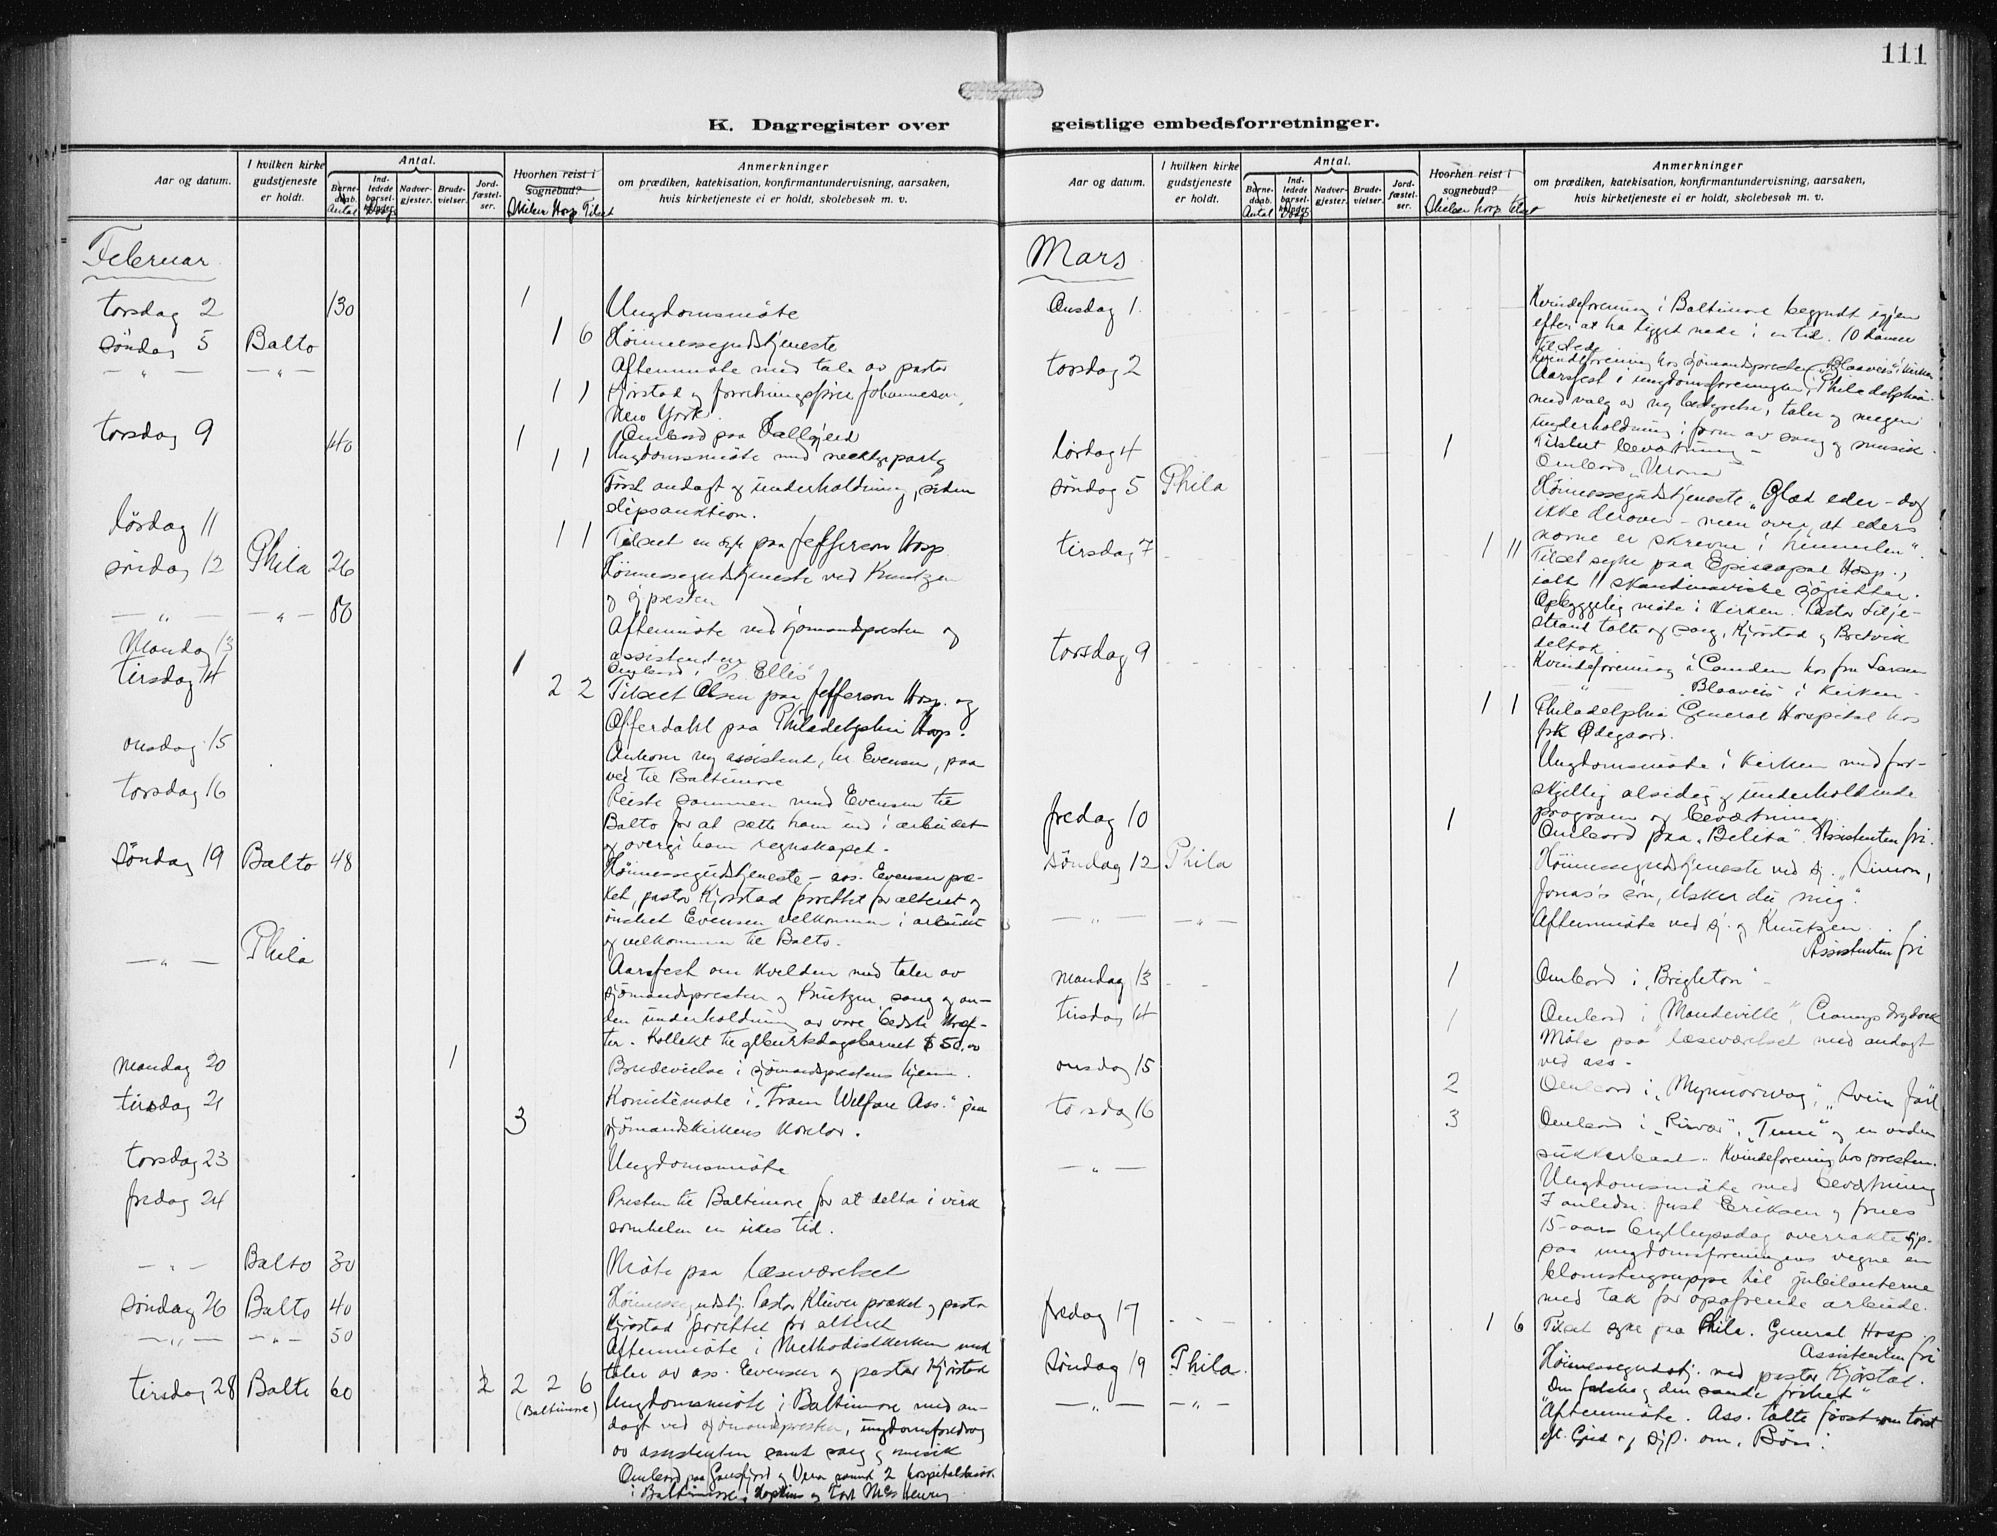 111
K. Dagregister over geistlige embedsforretninger.
Aar og datum.
I hvilken kirke gudstjeneste er holdt.
Antal.
Barnedaab.
Antal
Indledede barselkvinder.
Besøg
Nadvergjester.
Brudevielser.
Jordfæstelser.
Hvorhen reist i sognebud?
Skiber Hosp Tilset
Anmerkninger
om prædiken, katekisation, konfirmantundervisning, aarsaken, hvis kirketjeneste ei er holdt, skolebesøk m. v.
Februar
torsdag 2 130 1 Ungdomsmöte
søndag 5 Balto 1 6 Höimessegudstjeneste
— " — — " — Aftenmöte med tale av pastor
1 1 Kjørstad og forretningsfører Johannesen,
New York.
torsdag 9 40 1 Ombord paa Dallfjeld
1 1 Ungdomsmöte med necktyeparty
Først andagt og underholdning, siden
slipsauktion.
lördag 11 1 1 Tilset en syk paa Jefferson Hosp
søndag 12 Phila 26 Höimessegudstjeneste ved Knutzen
og sjpresten
— " — — " — 80 Aftenmöte ved sjömandspresten og
assistenten
Mandag 13 1 Ombord i S/S Ellis
tirsdag 14 2 2 Tilset Olsen paa Jefferson Hosp. og
Offerdahl paa Philadelphia Hosp.
onsdag 15 Ankom ny assistent, hr Evensen, paa
vei til Baltimore
torsdag 16 Reiste sammen med Evensen til
Balto for at sætte ham ind i arbeidet
og overgi ham regnskapet.
søndag 19 Balto 48 Höimessegudstjeneste – ass. Evensen præ-
ket, pastor Kjørstad forrettet for alteret og
önsket Evensen velkommen i arbeidet
og velkommen til Balto.
— " — Phila Aarsfest om kvelden med taler av
sjömandspresten og Knutzen, sang og an-
den underholdning av vore bedste kræf-
ter. Kollekt til geburtsdagsbarnet $50.00
Mandag 20 1 Brudevielse i sjömandsprestens hjem.
tirsdag 21 3 Komitemöte i "Fram Welfare Ass." paa
sjömandskirkens kontor.
torsdag 23 Ungdomsmöte
fredag 24 Presten til Baltimore for at delta i virk
somheten en ukes tid.
— " — Balto 30 Möte paa læseværelset
søndag 26 Balto 40 Höimessegudstj. Pastor Klüver præket og pastor
Kjørstad forrettet for alteret
— " — — " — 50 Aftenmöte i Methodistkirken med
taler av ass. Evensen og pastor Kjørstad
tirsdag 28 Balto 60 2 2 2 6 Ungdomsmöte i Baltimore med an-
(Baltimore)
dagt ved sjömandspresten, ungdomsforedrag
av assistenten samt sang og musik
Ombord paa og Vera samt 2 hospitalsbesök
i Baltimore, Hopkins og Fort McHenry
Aar og datum.
I hvilken kirke gudstjeneste er holdt.
Antal.
Barnedaab.
Antal
Indledede barselkvinder.
Besøg
Nadvergjester.
Brudevielser.
Jordfæstelser.
Hvorhen reist i sognebud?
Skiber Hosp Tilset
Anmerkninger
om prædiken, katekisation, konfirmantundervisning, aarsaken, hvis kirketjeneste ei er holdt, skolebesøk m. v.
Mars
Onsdag 1. Kvindeforening i Baltimore begyndt igjen
efter at ha ligget nede i en tid. 10 damer
tilstede
torsdag 2 Kvindeforening hos sjömandspresten, "Blaaveis" i kirken
Aarsfest i ungdomsforeningen i Philadelphia
med valg av ny bestyrelse, taler og megen
underholdning i form av sang og musik.
Tilslut beværtning –
lördag 4 1 Ombord "Verona"
søndag 5 Phila Höimessegudstjeneste "Glæd eder – dog
ikke derover – men over, at eders
navne er skrevne i himmelen".
tirsdag 7 1 11 Tilset syke paa Episcopal Hosp.,
ialt 11 skandinaviske sjöfolk.
Opbyggelig möte i kirken. Pastor Lilje-
strand talte og sang, Kjørstad og Bredvik
deltok.
torsdag 9 Kvindeforening i Camden hos fru Larsen
— " — Blaaveis i Kirken –
1 1 Philadelphia General Hospital hos
frk Ødegaard.
Ungdomsmöte i kirken med for-
skjellig alsidig og underholdende
program og beværtning
fredag 10 1 Ombord paa "Belita". Assistenten fri.
søndag 12 Phila Höimessegudstjeneste ved sj. "Simon,
Jonas's søn, elsker du mig".
— " — — " — Aftenmöte ved sj. og Knutzen.
Assistenten fri
mandag 13 1 Ombord i "Brighton"
tirsdag 14 1 Ombord i "Mandeville", Cramps drydock
Möte paa læseværelset med andagt
ved ass.
onsdag 15 2 Ombord i "Mymorrovag", "Svein Jarl"
torsdag 16 3 Ombord i "Risvær", "Tenn" og en anden
sukkerbaat – Kvindeforening hos presten.
— " — Ungdomsmöte med beværtning
I anledn. Just Eriksen og frues
15-aars bryllupsdag overrakte sjp.
paa ungdomsforeningens vegne en
blomstergruppe til jubilanterne
med tak for opofrende arbeide.
fredag 17 1 6 Tilset syke paa Phila. General Hosp
Assistenten fri
søndag 19 Phila. Höimessegudstj. ved pastor Kjørstad.
"Den falske og den sande frihet"
— " — — " — Aftenmöte. Ass. talte först om törst
eft. Gud og sjp. om, Bön: